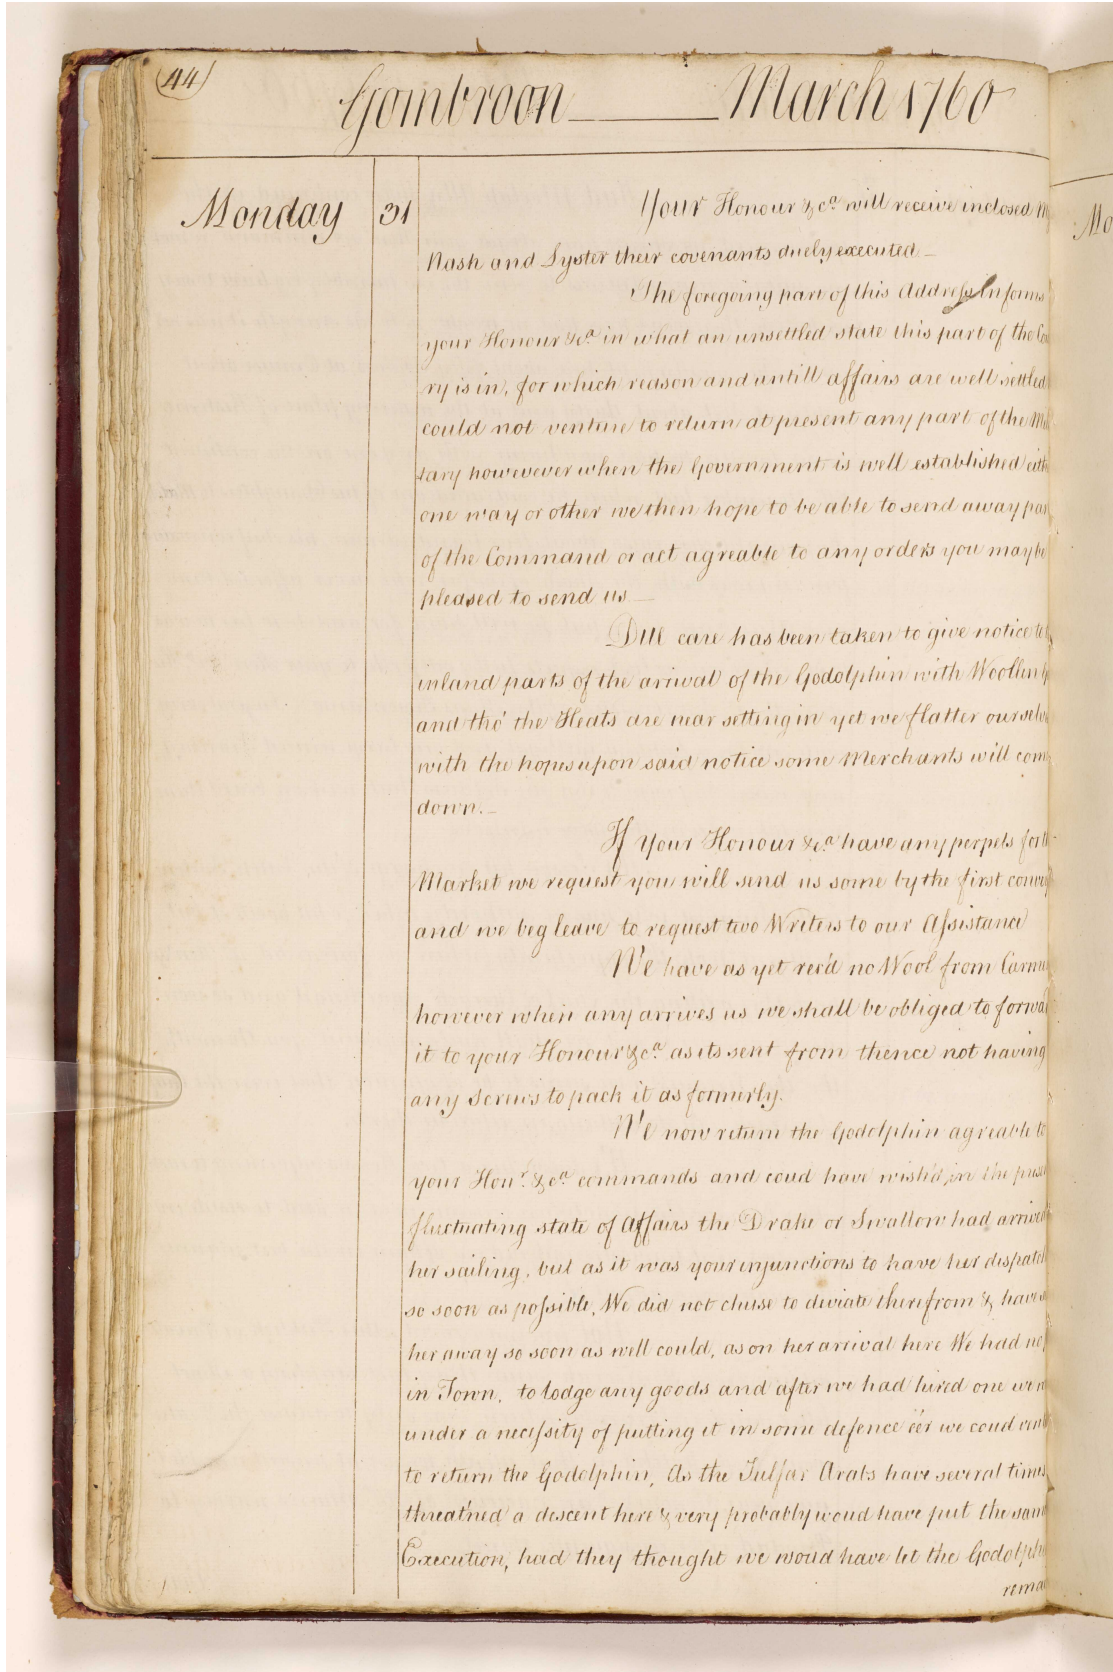 (44)
Gombroon March 1760
Monday 31 Your Honour &ca. will receive inclosed M
Nash and Lyster their covenants duely executed
The foregoing part of this Address Informs
your Honour &ca. in what an unsettled state this part of the Co
ry is in, for which reason and untill affairs are well settled
could not venture to return at present any part of the Mil
tary howevever when the Government is well established eith
one way or other we then hope to be able to send away par
of the Command or act agreable to any orders you may be
pleased to send us
Due care has been taken to give notice to
inland parts of the arrival of the Godolphin with Woollen
and tho' the Heats are near setting in yet we flatter ourselv
with the hopes upon said notice some Merchants will com
down.
If Your Honour &ca. have any perpets for
Market we request you will send us some by the first convey
and we beg leave to request two Writers to our Assistance
We have as yet reced no Wool from Carm
however when any arrives us we shall be obliged to forwa
it to your Honour &ca. as its sent from thence not having
any Screws to pack it as formerly.
We now return the Godolphin agreable to
your Honr. &ca. commands and coud have wish'd, in the prese
fluctuating state of Affairs the Drake or Swallow had arrived
her sailing, but as it was your injunctions to have her dispatch
so soon as possible, We did not chuse to deviate therefrom & have
her away so soon as well could, as on her arrival here We had no
in Town, to lodge any goods and after we had hired one were
under a necessity of putting it in some defence e'er we coud vent
to return the Godolphin, As the Julfar Arabs have several times
threat'ned a descent here & very probably woud have put the same
Execution, had they thought we would have let the Godolph
rema